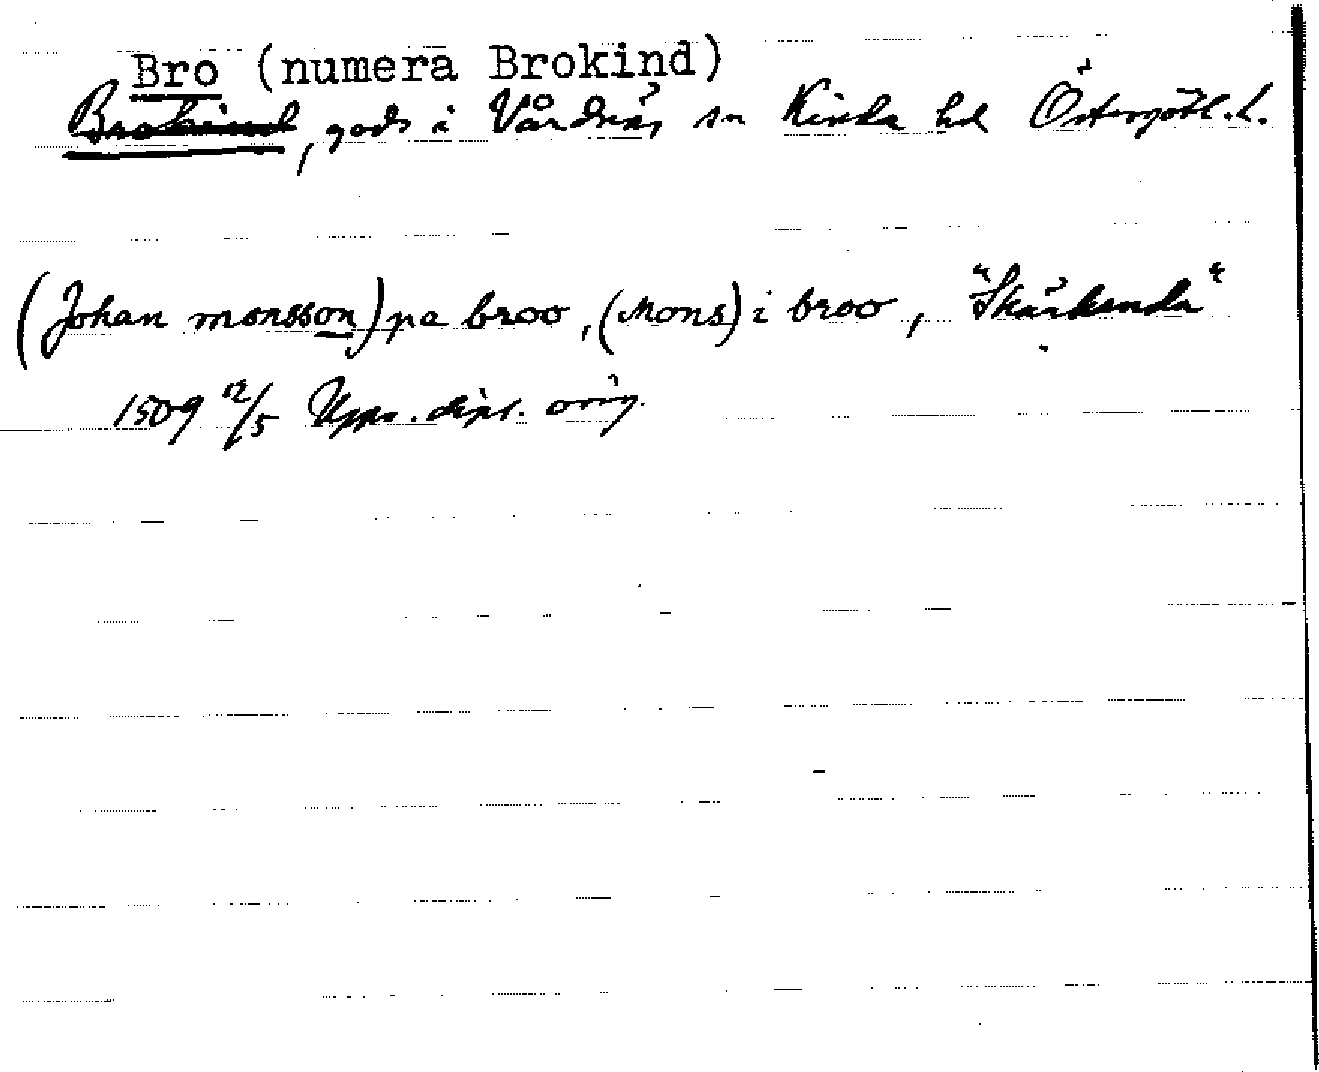 Bro (numera Brokind)
Brokind, gods i Vårdnäs sn Kinda hd Östergötl. l.
(Johan monsson) pa broo, (Mons) i broo, "Skärkinda"
1509 12/5 Upps. dipl. orig.